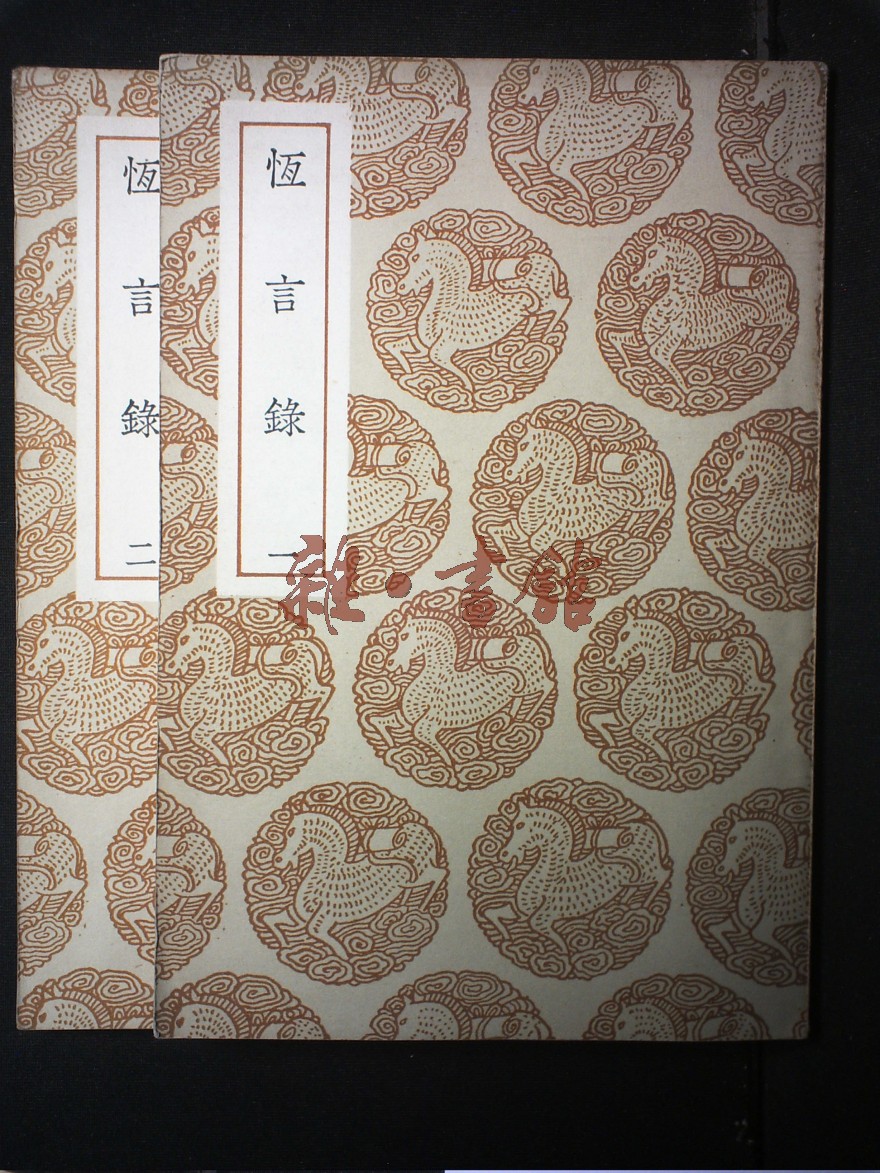 恆言錄 一
恆言錄 二
雜·書館